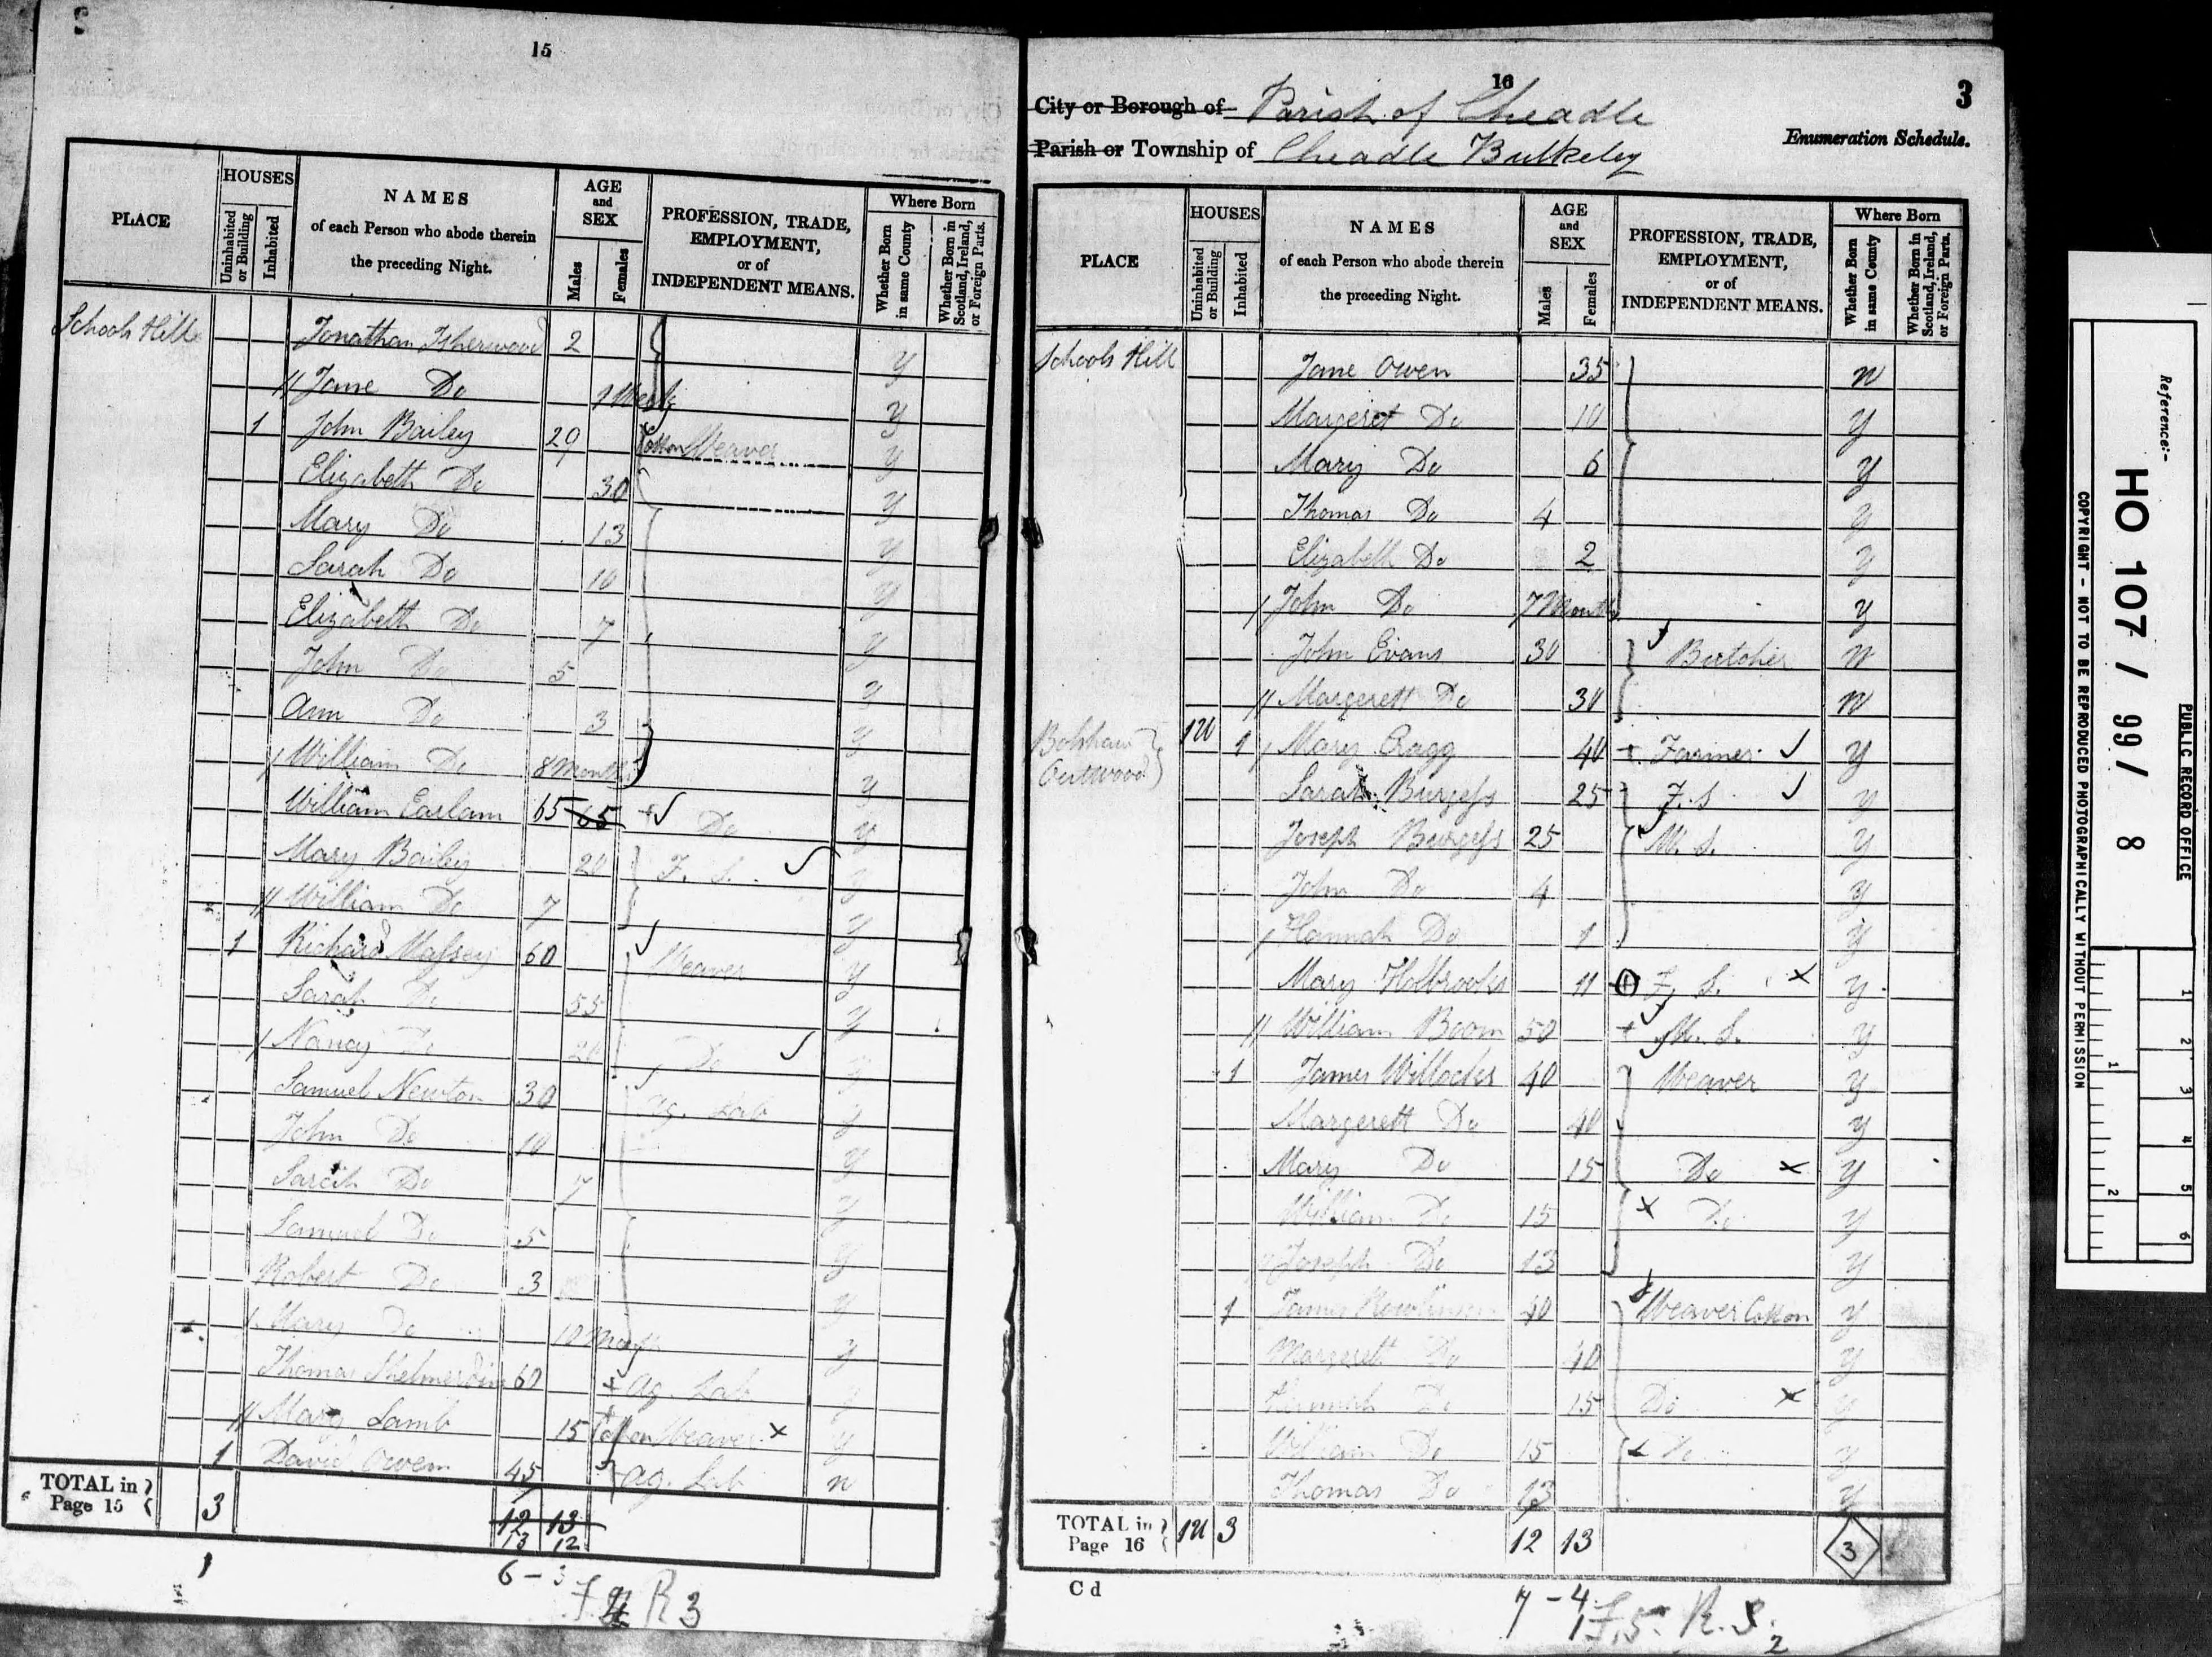 15
PLACE
HOUSES
Uninhabited or Building
Inhabited
NAMES
of each Person who abode therein
the preceding Night.
AGE
and
SEX
Males
Females
PROFESSION, TRADE,
EMPLOYMENT,
or of
INDEPENDENT MEANS.
Where Born
Whether Born in same County
Whether Born in Scotland, Ireland, or Foreign Parts.
Schools Hill Jonathan Isherwood 2 y
Jane Do 1 Week y
1 John Bailey 29 Cotton Weaver y
Elizabeth Do 30 y
Mary Do 13 y
Sarah Do 10 y
Elizabeth Do 7 y
John Do 5 y
Ann Do 3 y
William Do 8 Months y
William Earlam 65 65 Do y
Mary Bailey 20 F. S. y
William Do 7 y
1 Richard Massey 60 Weaver y
Sarah Do 55 y
Nancy Do 20 Do y
Samuel Newton 30 Ag. Lab y
John Do 10 y
Sarah Do 7 y
Samuel Do 5 y
Robert Do 3 y
Mary Do 10 Month y
Thomas Shelmerdine 60 Ag. Lab y
Mary Lamb 15 Cotton Weaver x y
1 David Owen 45 Ag. Lab n
TOTAL in Page 15 3 12 13
13 12
6 - 3
R 3
16
3
City or Borough of Parish of Cheadle
Parish or Township of Cheadle Bulkeley
Enumeration Schedule.
PLACE
HOUSES
Uninhabited or Building
Inhabited
NAMES
of each Person who abode therein
the preceding Night.
AGE
and
SEX
Males
Females
PROFESSION, TRADE,
EMPLOYMENT,
or of
INDEPENDENT MEANS.
Where Born
Whether Born in same County
Whether Born in Scotland, Ireland, or Foreign Parts.
Schools Hill Jane Owen 35 n
Margeret Do 10 y
Mary Do 6 y
Thomas Do 4 y
Elizabeth Do 2 y
John Do 7 Months y
John Evans 30 Butcher n
Margerett Do 30 n
Bolshaw Outwood 1U 1 Mary Cragg 40 Farmer y
Sarah Burgess 25 F. S y
Joseph Burgess 25 M. S. y
John Do 4 y
Hannah Do 1 y
Mary Holbrooks 11 F. S. x y
William Boom 50 M. S. y
1 James Willocks 40 Weaver y
Margerett Do 40 y
Mary Do 15 Do x y
William Do 15 x Do y
Joseph Do 13 y
1 James Rowlinson 40 Weaver Cotton y
Margerett Do 40 y
Do 15 Do x y
William Do 15 Do y
Thomas Do 13 y
TOTAL in Page 16 1U 3 12 13
3
C d
7 - 4
Reference:-
HO 107 / 99 / 8
PUBLIC RECORD OFFICE
COPYRIGHT - NOT TO BE REPRODUCED PHOTOGRAPHICALLY WITHOUT PERMISSION
1 2 3 4 5 6
1 2